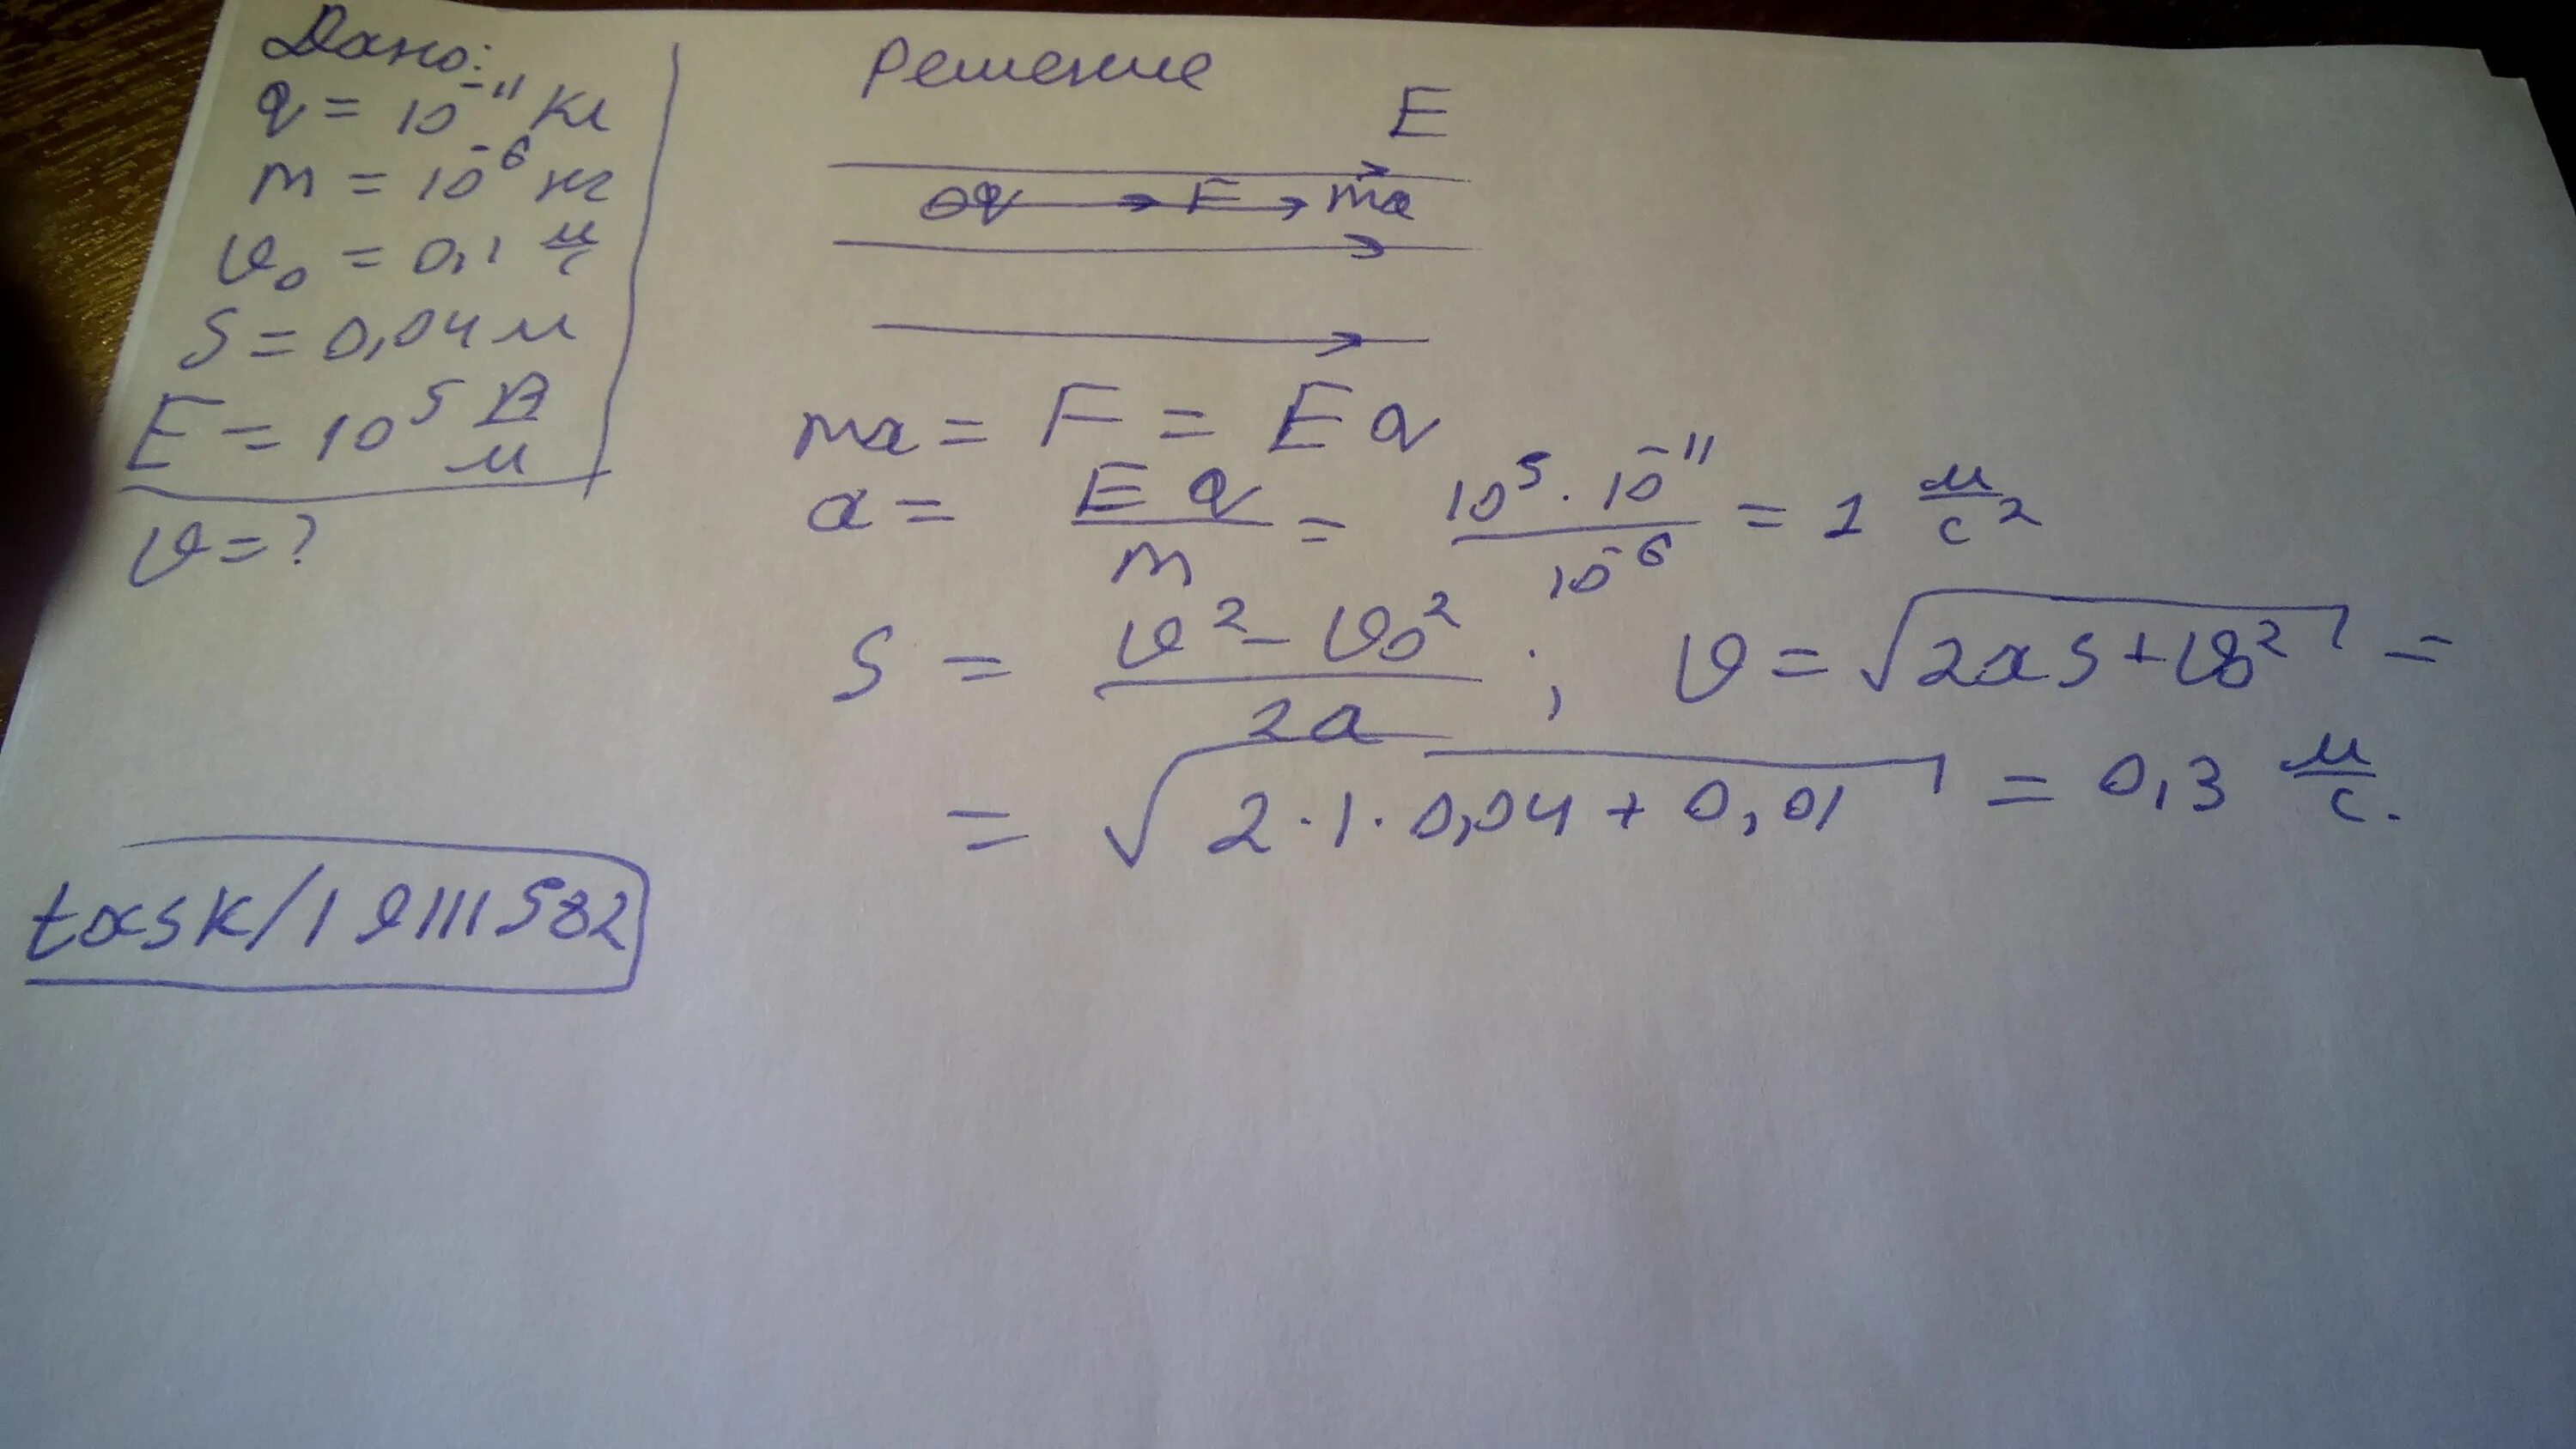 Дано:
q = 10⁻¹¹ Кл
m = 10⁻⁶ кг
υ₀ = 0,1 м/с
S = 0,04 м
E = 10⁵ В/м
υ = ?
Решение
E
q F ma
ma = F = E q
a = E q / m = 10⁵ · 10⁻¹¹ / 10⁻⁶ = 1 м/с²
S = υ² - υ₀² / 2a ; υ = √2aS + υ₀² =
= √2 · 1 · 0,04 + 0,01 = 0,3 м/с.
task/19111582